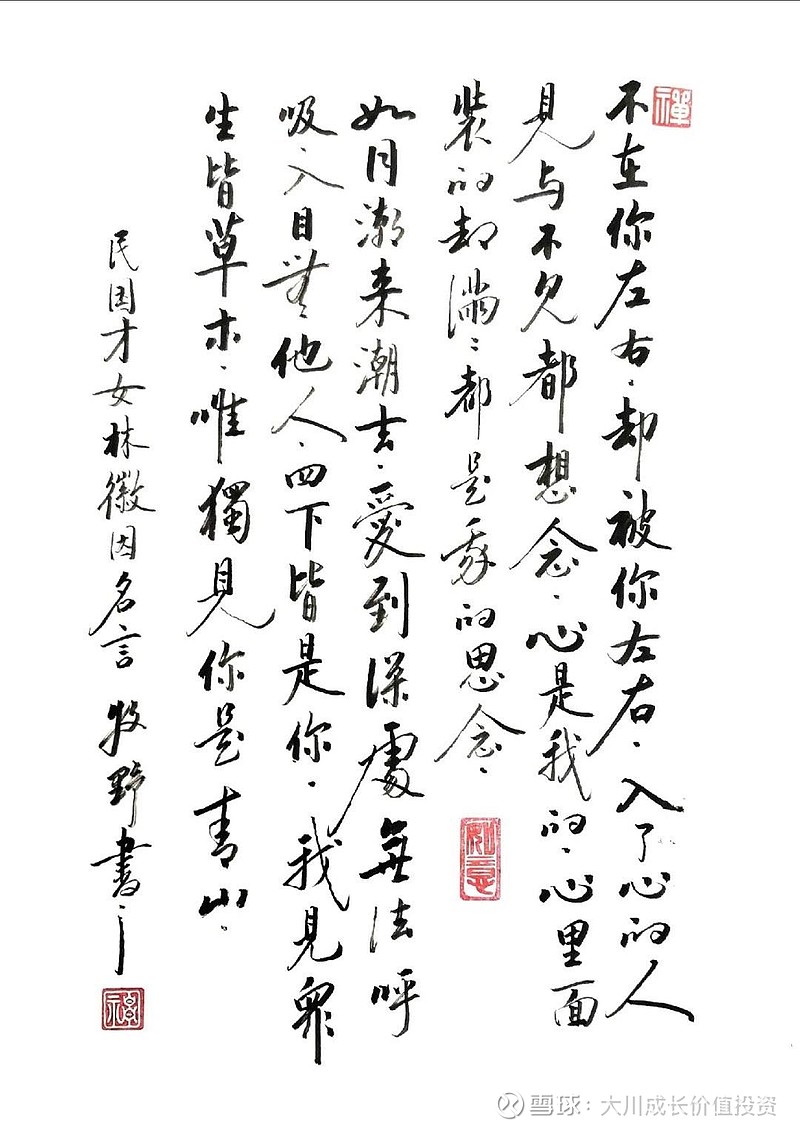 禪
不在你左右、却被你左右、入了心的人
見与不见都想念、心是我的、心里面
裝的却滿〻都是我的思念、
如意
如月潮来潮去、愛到深處無法呼
吸、入目無他人、四下皆是你、我見眾
生皆草木、唯獨見你是青山、
民国才女林徽因名言 牧野書
雪球：大川成长价值投资